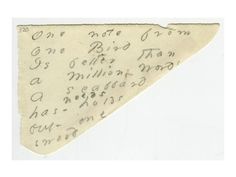 320
One note from
One Bird
Is better than
a million words
A scabbard
has - holds
but one
sword